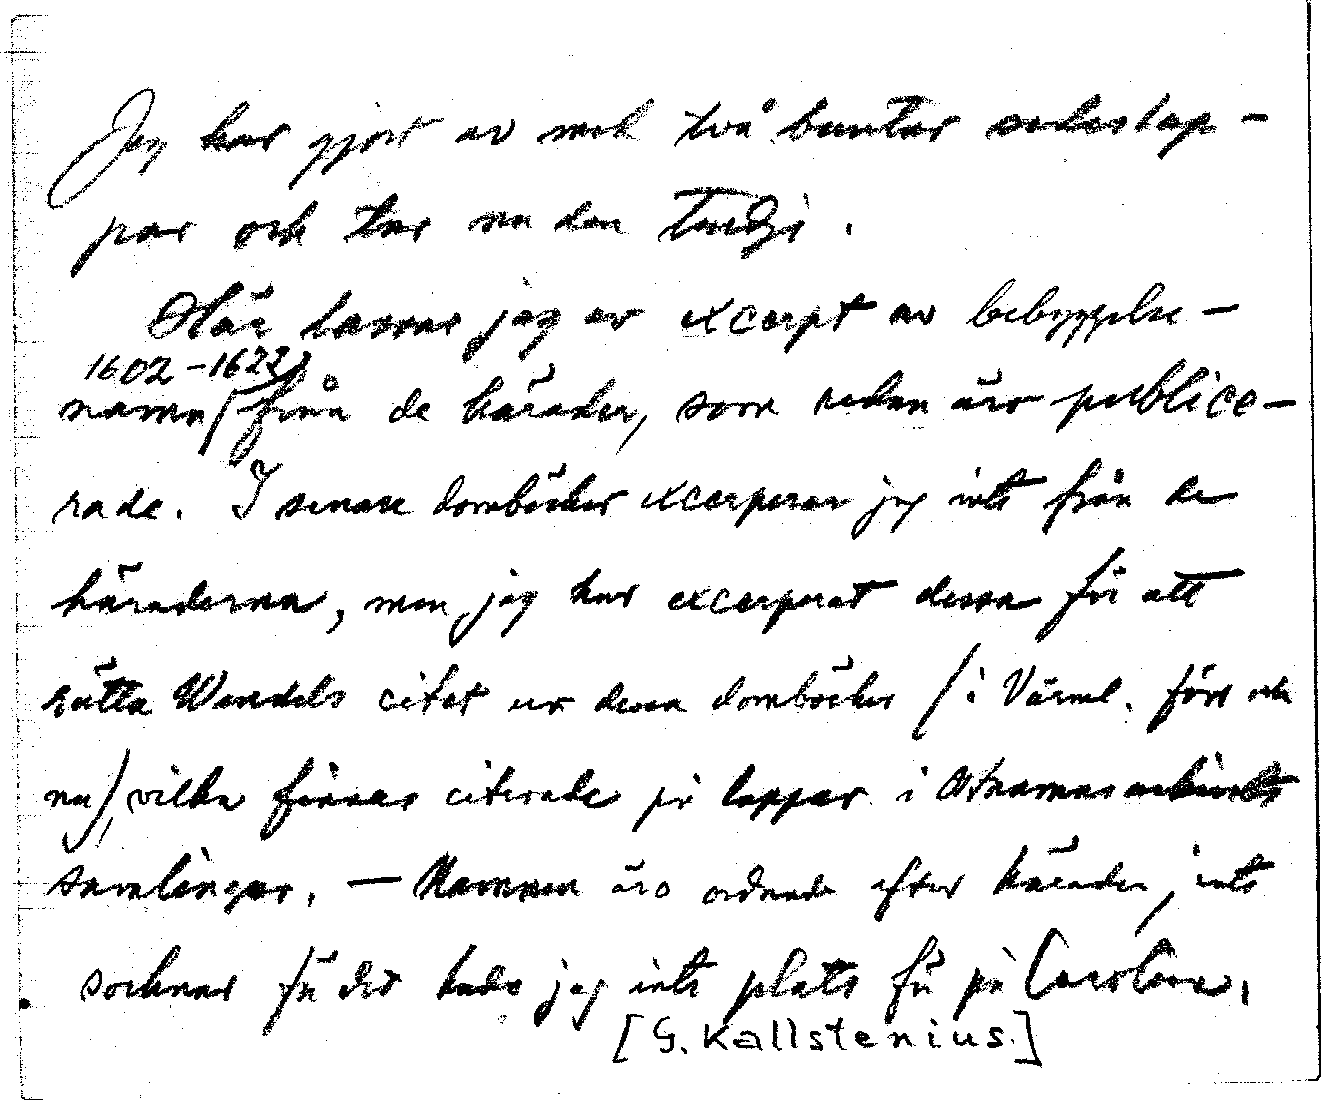 Jag har gjort av med två buntar sedeslap-
par och tar nu den tredje.
Här lämnar jag av excerpt av bebyggelse-
1602-1622)
namn/från de härader, som redan äro publice-
rade. I senare domböcker excerperar jag inte från de
häraderna, men jag har excerperat dessa för att
rätta Wendels citat ur dessa domböcker (i Värml. förr och
nu), vilka finnas citerade på lappar i Ortnamnsarkivets
samlingar. — Namnen äro ordnade efter härader, inte
socknar för det hade jag inte plats för på Carolina.
[G. Kallstenius.]